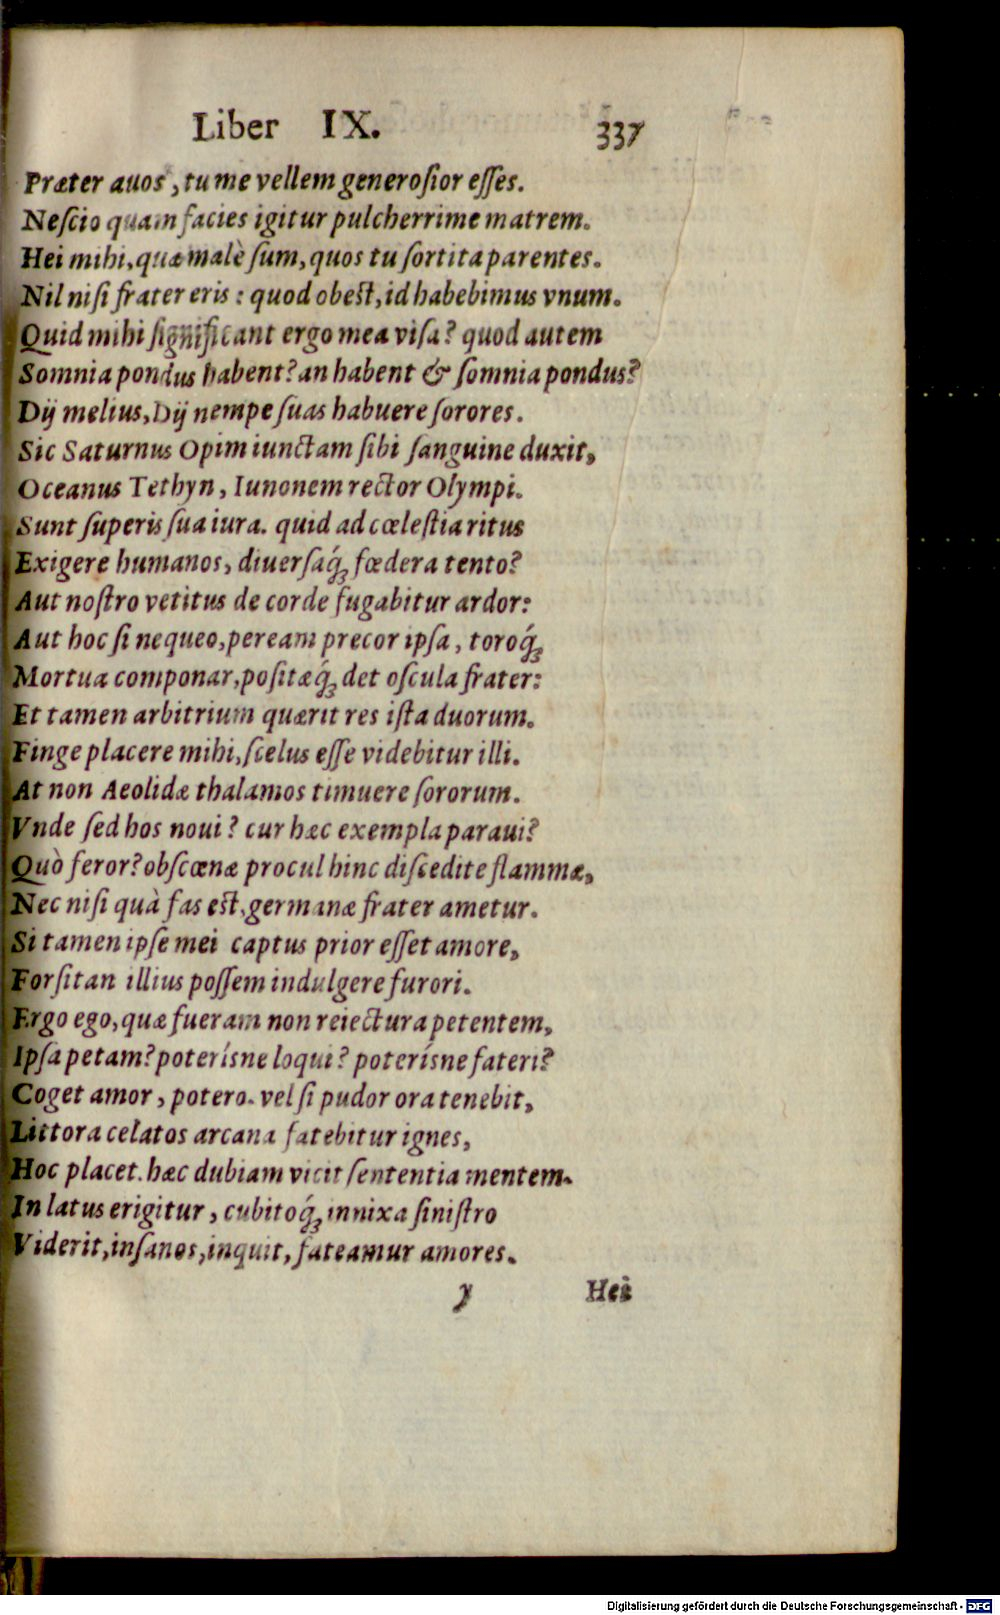 Liber IX. 337
Præter auos, tu me vellem generoſior eſſes.
Neſcio quam facies igitur pulcherrime matrem.
Hei mihi, quæ malè ſum, quos tu ſortita parentes.
Nil niſi frater eris: quod obest, id habebimus vnum.
Quid mihi ſignificant ergo mea viſa? quod autem
Somnia pondus habent? an habent & ſomnia pondus?
Dij melius, Dij nempe ſuas habuere ſorores.
Sic Saturnus Opim iunctam ſibi ſanguine duxit,
Oceanus Tethyn, Iunonem rector Olympi.
Sunt ſuperis ſua iura. quid ad cœleſtia ritus
Exigere humanos, diuerſaq́ꝫ fœdera tento?
Aut noſtro vetitus de corde fugabitur ardor:
Aut hoc ſi nequeo, peream precor ipſa, toroq́ꝫ
Mortua componar, poſitæq́ꝫ det oſcula frater:
Et tamen arbitrium quærit res iſta duorum.
Finge placere mihi, ſcelus eſſe videbitur illi.
At non Aeolidæ thalamos timuere ſororum.
Vnde ſed hos noui? cur hæc exempla paraui?
Quò feror? obſcœnæ procul hinc diſcedite flammæ,
Nec niſi quà fas est, germanæ frater ametur.
Si tamen ipſe mei captus prior eſſet amore,
Forſitan illius poſſem indulgere furori.
Ergo ego, quæ fueram non reiectura petentem,
Ipſa petam? poterísne loqui? poterísne fateri?
Coget amor, potero. vel ſi pudor ora tenebit,
Littora celatos arcana fatebitur ignes,
Hoc placet. hæc dubiam vicit ſententia mentem.
In latus erigitur, cubitoq́ꝫ innixa ſiniſtro
Viderit, inſanos, inquit, fateamur amores.
y Hei
Digitalisierung gefördert durch die Deutsche Forschungsgemeinschaft - DFG